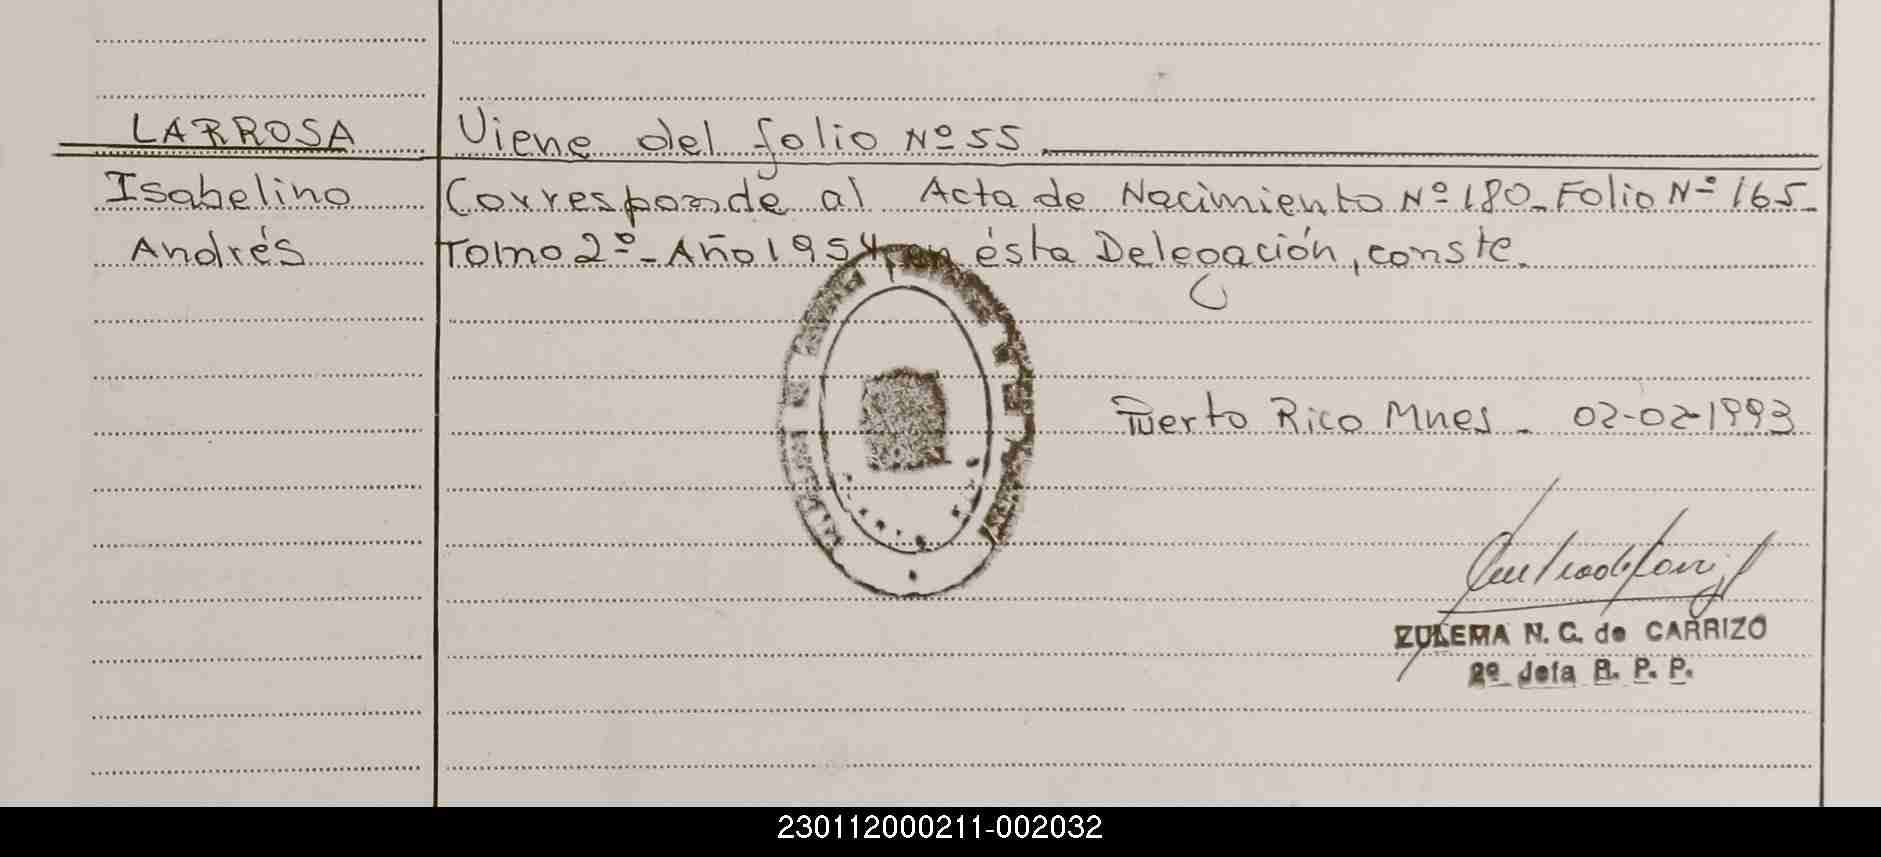 LARROSA Viene del folio Nº 55.
Isabelino Corresponde al Acta de Nacimiento Nº 180_ Folio Nº 165_
Andrés Tomo 2º_ Año 1954, en ésta Delegación, conste.
Puerto Rico Mnes_ 02-02-1993
ZULEMA N. C. de CARRIZO
2º Jefa R. P. P.
230112000211-002032